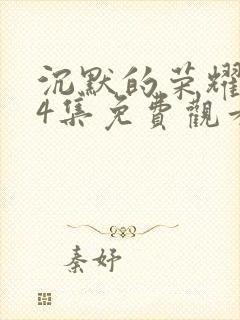 沉默的荣耀
4集免費觀
秦妤